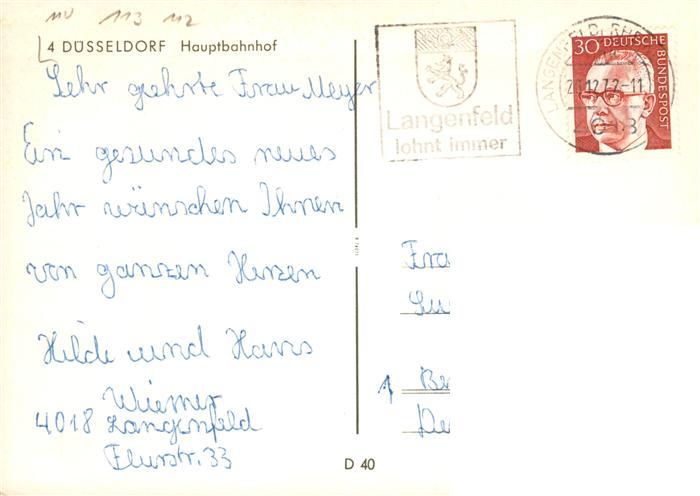 MU 113 112
4 DÜSSELDORF Hauptbahnhof
Sehr geehrte Frau Meyer
Ein gesundes neues
Jahr wünschen Ihnen
von ganzen Herzen
Hilde und Hans
Wiemer
4018 Langenfeld
Flurstr. 33
Langenfeld
lohnt immer
LANGENFELD, RHEINL
72-11
4018
30 DEUTSCHE
BUNDESPOST
Frau
1 Be
D 40